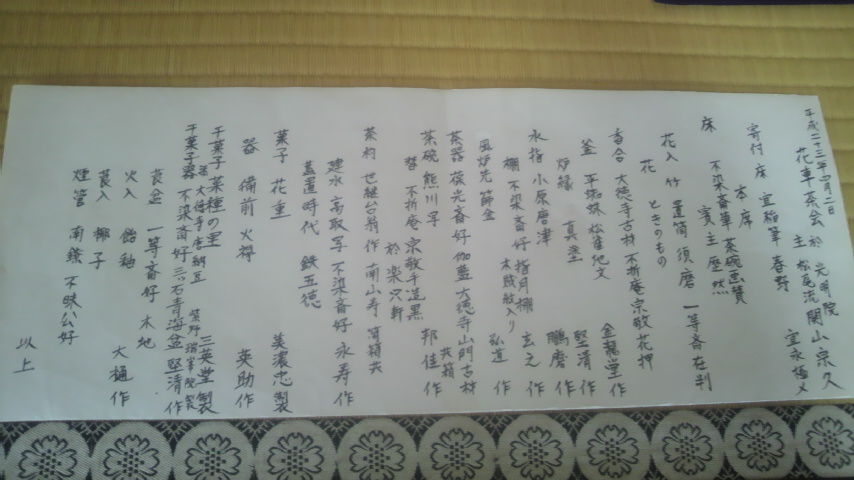 平成二十三年四月二日
花車茶会 於 光明院
主 松尾流 関山宗久
宜永
寄付 床 宜稲筆 春野
本席
床 不染斎筆 茶碗画賛
賓主歴然
花入 竹 置筒 須磨 一等斎在判
花 ときのもの
香合 大徳寺古材 不折庵宗敬花押
釜 平蜘蛛 松雀地文 金龍堂作
炉縁 真塗 堅清作
水指 小原唐津 鵬磨作
棚 不染斎好 指月棚 玄之作
風炉先 篩金 弘道作
茶器 葆光斎好 伽藍 大徳寺山門古材
共箱
茶碗 熊川写 邦佳作
替 不折庵宗敬手造黒
於楽只軒
茶杓 也軽台翁作 南山寿 筒箱共
建水 高取写 不染斎好 永寿作
蓋置 時代 鉄五徳
菓子 花重 美濃忠製
器 備前 火襷 英助作
干菓子 菜種の里 三英堂製
添 大徳寺唐納豆 紫野瑞峯院製
干菓子器 不染斎好 三ツ石青海盆 堅清作
莨盆 一等斎好 木地
火入 飴釉 大樋作
莨入 椰子
煙管 南鐐 不昧公好
以上